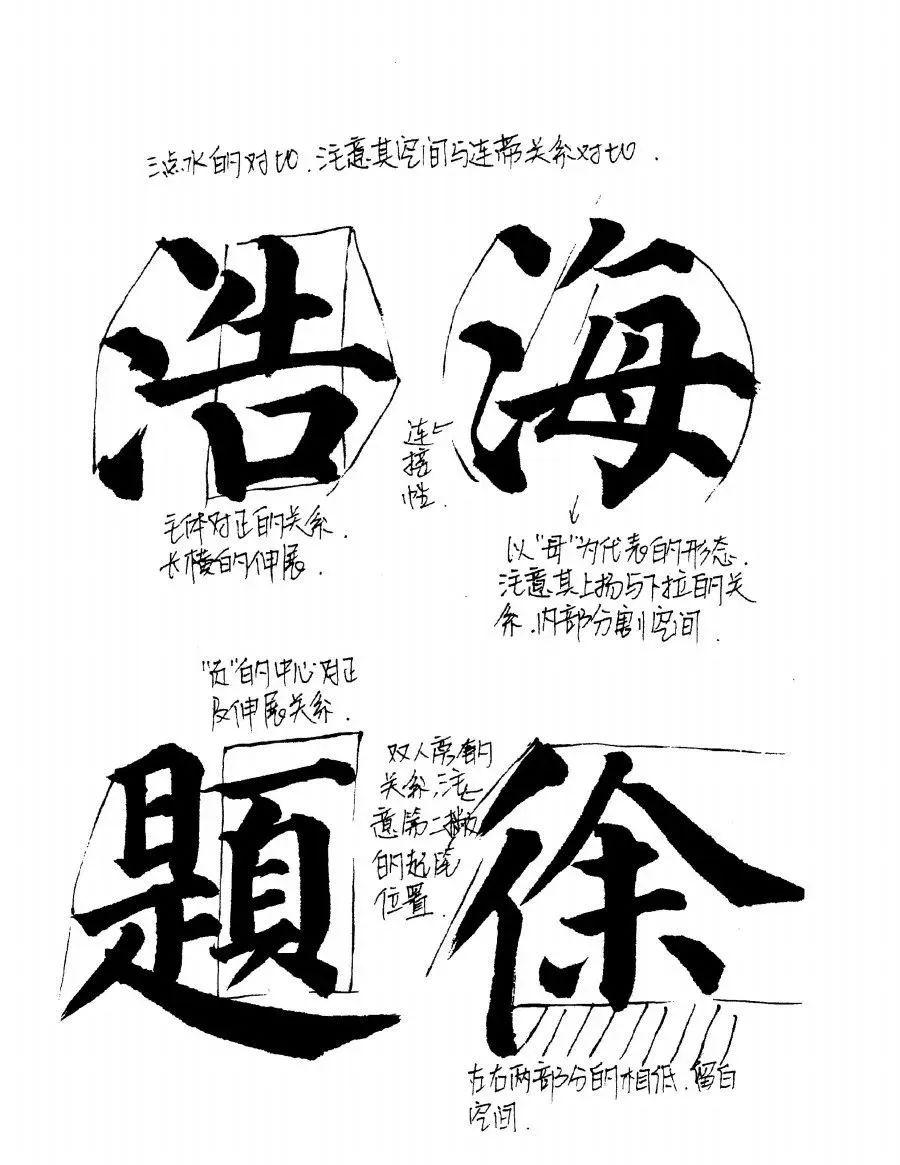 三点水的对切.注意其空间与连带关系对切.
浩海
连
接
性.
主体对正的关系.
长横的伸展.
以"母"为代表的形态.
注意其上扬与下拉的关
系.内部分割空间.
"页"的中心对正
及伸展关系.
双人旁的
关系,注
意第二撇
的起笔
位置.
题徐
左右两部分的相低.留白
空间.